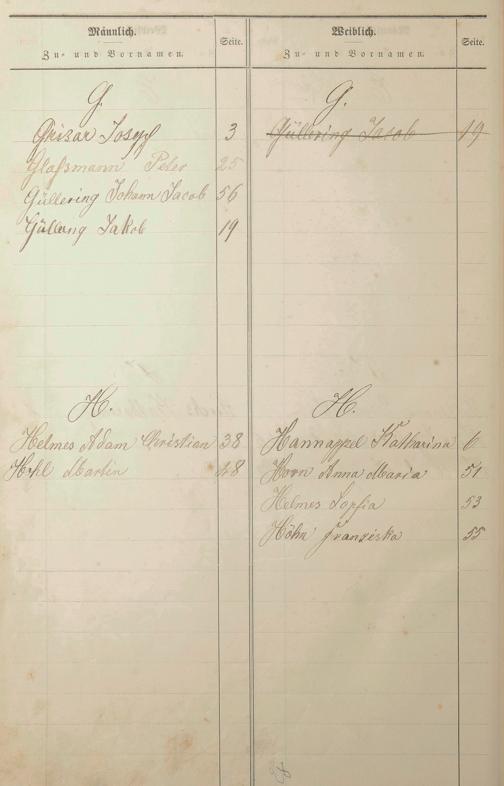 Männlich.
Zu- und Vornamen.
Seite.
G.
Grisar Josepf 3
Glaßmann Peter 25
Güllering Johann Jacob 56
Güllering Jakob 19
H.
Helmes Adam Christian 38
Martin 48
Weiblich.
Zu- und Vornamen.
Seite.
G.
Güllering Jacob 19
H.
Hannappel Katharina 6
Horn Anna Maria 51
Helmes Sopfia 53
Höhn Franziska 55